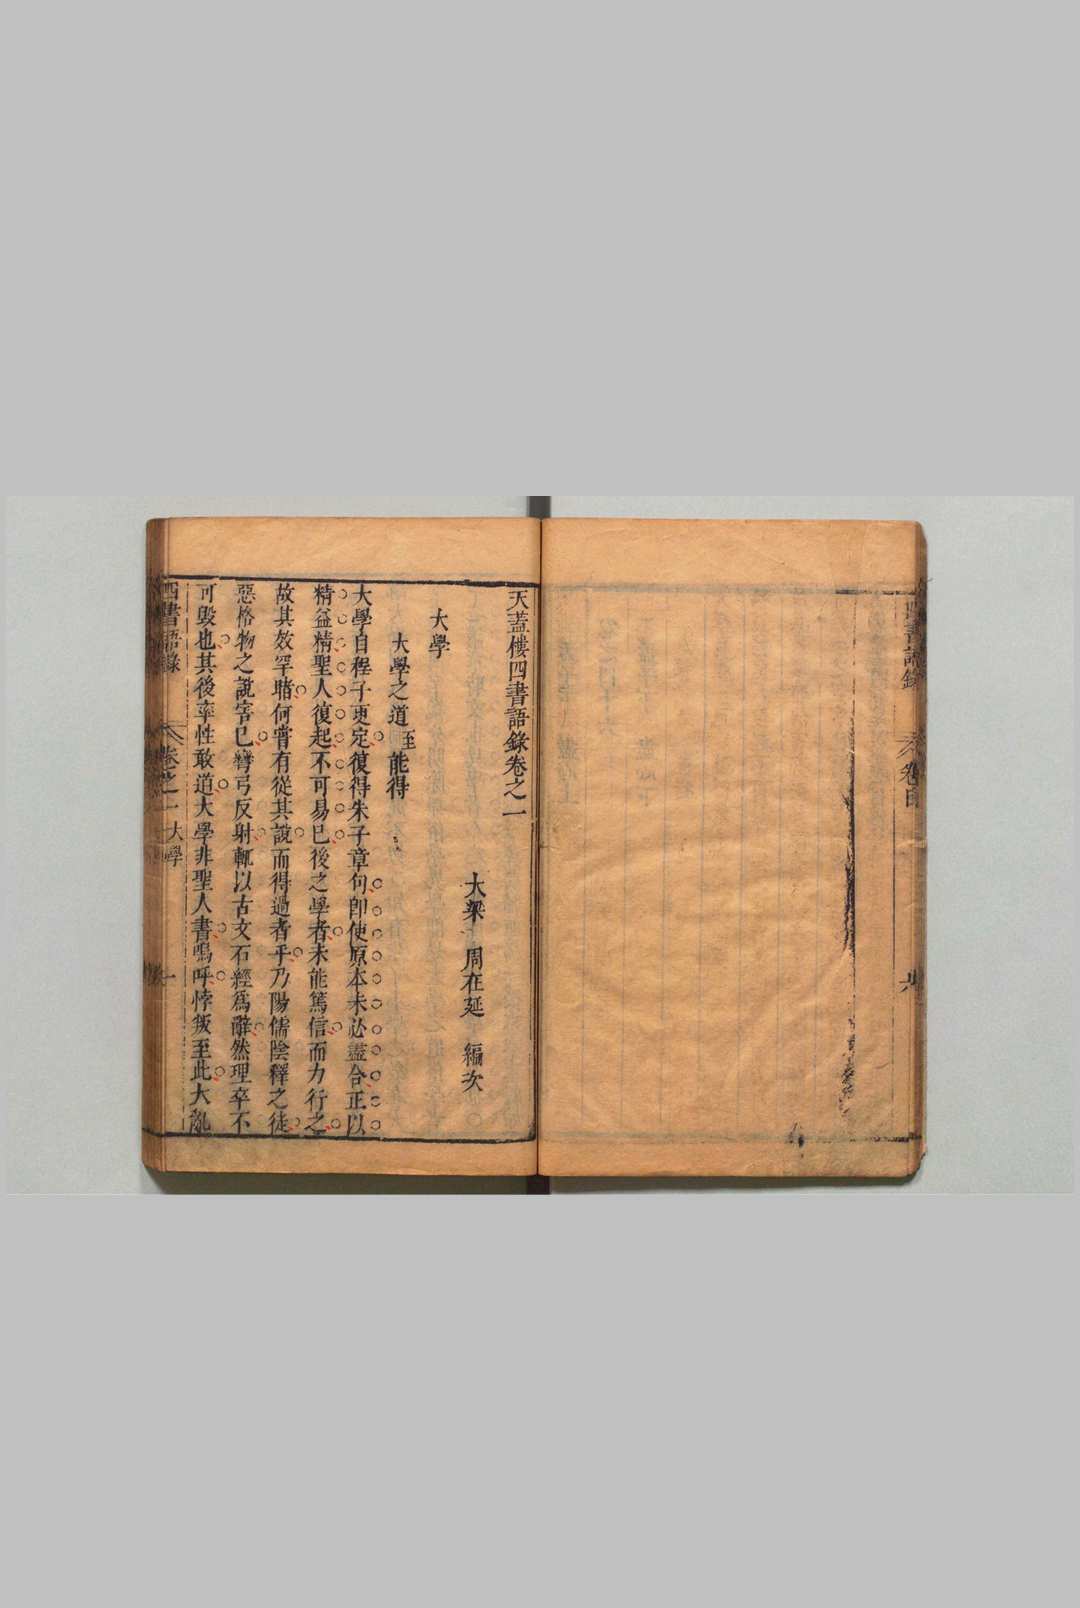 四書語錄
卷目
天蓋樓四書語錄卷之一
大梁 周在延 編次
大學
大學之道至能得
大學自程子更定復得朱子章句卽使原本未必盡合正以
精益精聖人復起不可易已後之學者未能篤信而力行之
故其效罕睹何嘗有從其說而得過者乎乃陽儒陰釋之徒
惡格物之說害己彎弓反射輒以古文石經爲辭然理卒不
可毀也其後率性敢道大學非聖人書嗚呼悖叛至此大亂
四書語錄
卷之一 大學
一